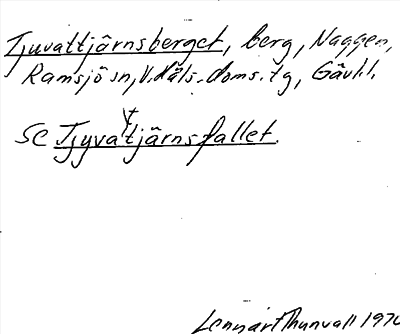 Tjuvattjärnsberget, berg, Naggen,
Ramsjö sn, V. Häls. doms. tg, Gävl.l.
Se Tjyvattjärnsfallet.
Lennart Thunvall 197